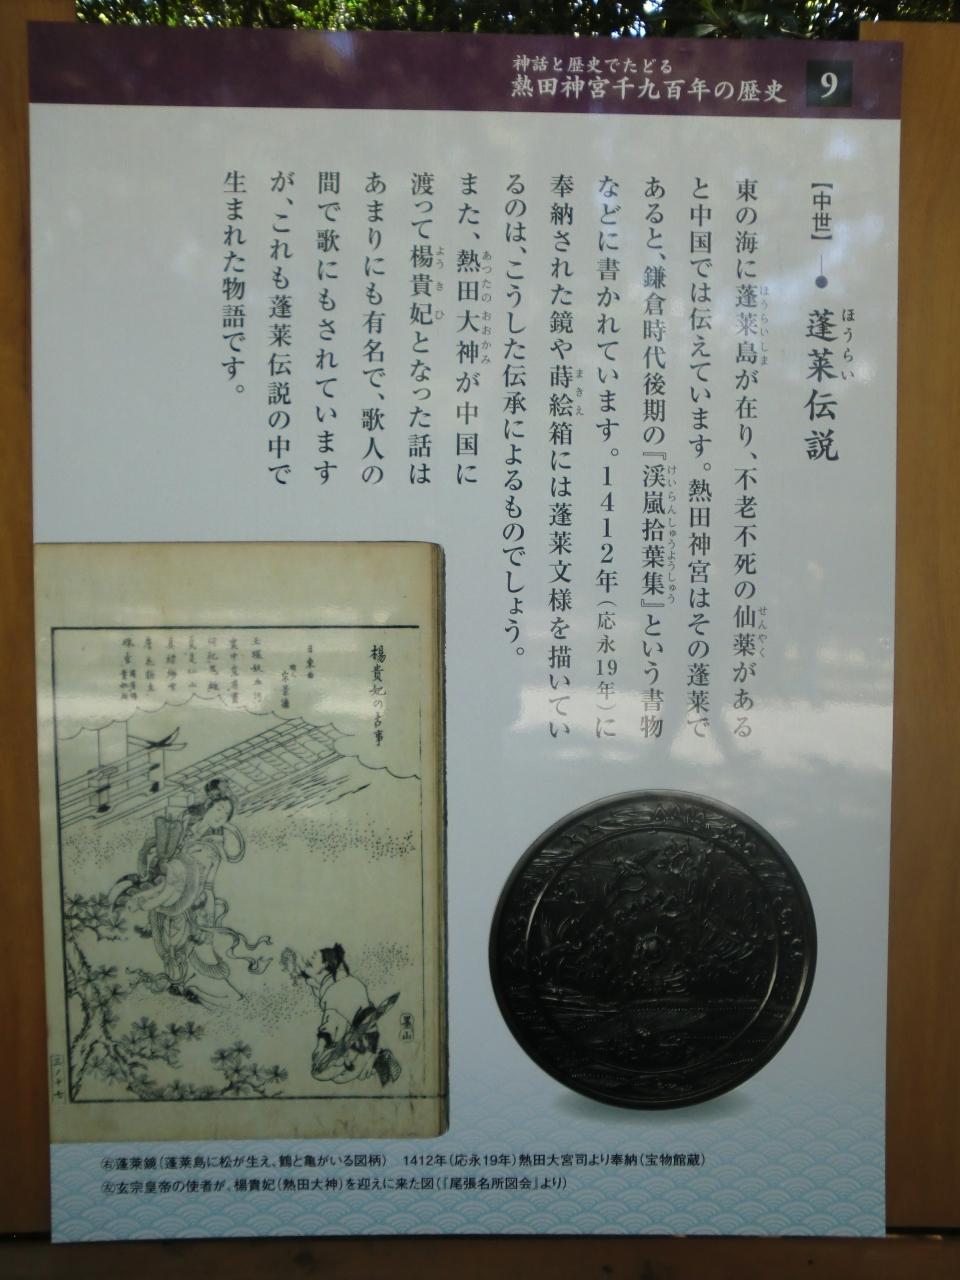 神話と歴史でたどる
熱田神宮千九百年の歴史
9
【中世】
蓬莱伝説
ほうらい
東の海に蓬莱島が在り、不老不死の仙薬がある
ほうらいしま
せんやく
と中国では伝えています。熱田神宮はその蓬莱で
あると、鎌倉時代後期の『渓嵐拾葉集』という書物
けいらんしゅうようしゅう
などに書かれています。1412年(応永19年)に
奉納された鏡や蒔絵箱には蓬莱文様を描いてい
まきえ
るのは、こうした伝承によるものでしょう。
また、熱田大神が中国に
あつたのおおかみ
渡って楊貴妃となった話は
ようきひ
あまりにも有名で、歌人の
間で歌にもされています
が、これも蓬莱伝説の中で
生まれた物語です。
楊貴妃の古事
墨山
三ノ十七
㊨蓬莱鏡(蓬莱島に松が生え、鶴と亀がいる図柄) 1412年(応永19年)熱田大宮司より奉納(宝物館蔵)
㊧玄宗皇帝の使者が、楊貴妃(熱田大神)を迎えに来た図(『尾張名所図会』より)